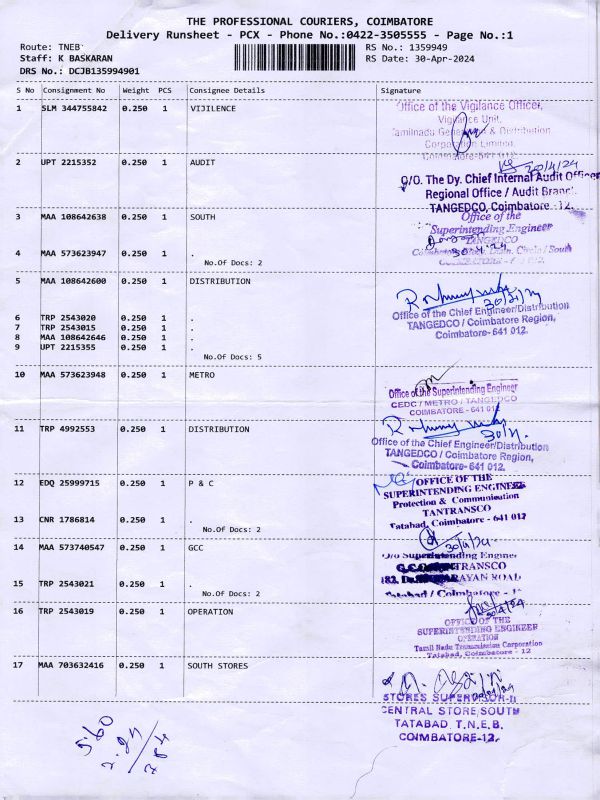 THE PROFESSIONAL COURIERS, COIMBATORE
Delivery Runsheet - PCX - Phone No.:0422-3505555 - Page No.:1
Route: TNEB RS No.: 1359949
Staff: K BASKARAN RS Date: 30-Apr-2024
DRS No.: DCJB135994901
S No Consignment No Weight PCS Consignee Details Signature
1 SLM 344755842 0.250 1 VIJILENCE
Office of the Vigilance Officer,
Vigilance Unit,
Tamilnadu Generation & Distribution
Corporation Limited,
Coimbatore-641 012
2 UPT 2215352 0.250 1 AUDIT
30/4/24
O/O. The Dy. Chief Internal Audit Officer
Regional Office / Audit Branch.
TANGEDCO, Coimbatore - 12.
3 MAA 108642638 0.250 1 SOUTH
Office of the
Superintending Engineer
TANGEDCO
30.4.24
4 MAA 573623947 0.250 1 .
No.Of Docs: 2
5 MAA 108642600 0.250 1 DISTRIBUTION
30/4/24
Office of the Chief Engineer/Distribution
TANGEDCO / Coimbatore Region,
Coimbatore- 641 012.
6 TRP 2543020 0.250 1 .
7 TRP 2543015 0.250 1 .
8 MAA 108642646 0.250 1 .
9 UPT 2215355 0.250 1 .
No.Of Docs: 5
10 MAA 573623948 0.250 1 METRO
Office of the Superintending Engineer
CEDC / METRO / TANGEDCO
COIMBATORE - 641 012
11 TRP 4992553 0.250 1 DISTRIBUTION
Office of the Chief Engineer/Distribution
TANGEDCO / Coimbatore Region,
Coimbatore- 641 012.
12 EDQ 25999715 0.250 1 P & C
OFFICE OF THE
SUPERINTENDING ENGINEER
Protection & Communication
TANTRANSCO
Tatabad, Coimbatore - 641 012
13 CNR 1786814 0.250 1 .
No.Of Docs: 2
14 MAA 573740547 0.250 1 GCC
30/4/24
O/o Superintending Engineer
TRANSCO
182, RAYAN ROAD
Tatabad / Coimbatore - 12
15 TRP 2543021 0.250 1 .
No.Of Docs: 2
16 TRP 2543019 0.250 1 OPERATION
30/4/24
OFFICE OF THE
SUPERINTENDING ENGINEER
OPERATION
Tamil Nadu Transmission Corporation
Tatabad, Coimbatore - 12
17 MAA 703632416 0.250 1 SOUTH STORES
STORES SUPERVISOR-II
CENTRAL STORE, SOUTH
TATABAD, T.N.E.B,
COIMBATORE-12.